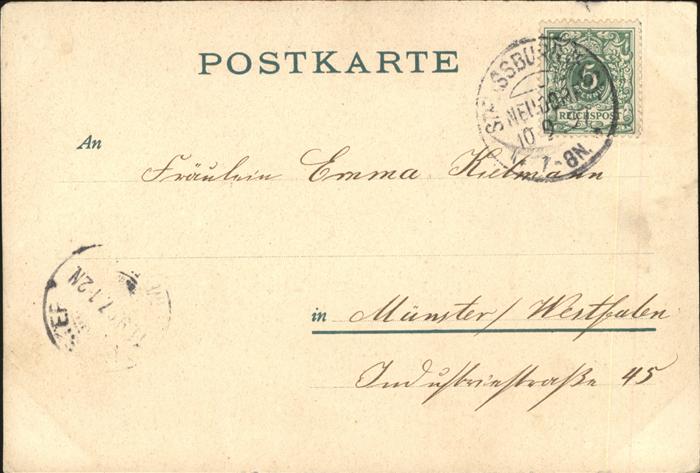 POSTKARTE
STRASSBURG
NEUDORF
10 9
7-8N.
5
REICHSPOST
An
Fräulein Emma Kielmann
in Münster/Westfalen
Industriestraße 45
1-2N